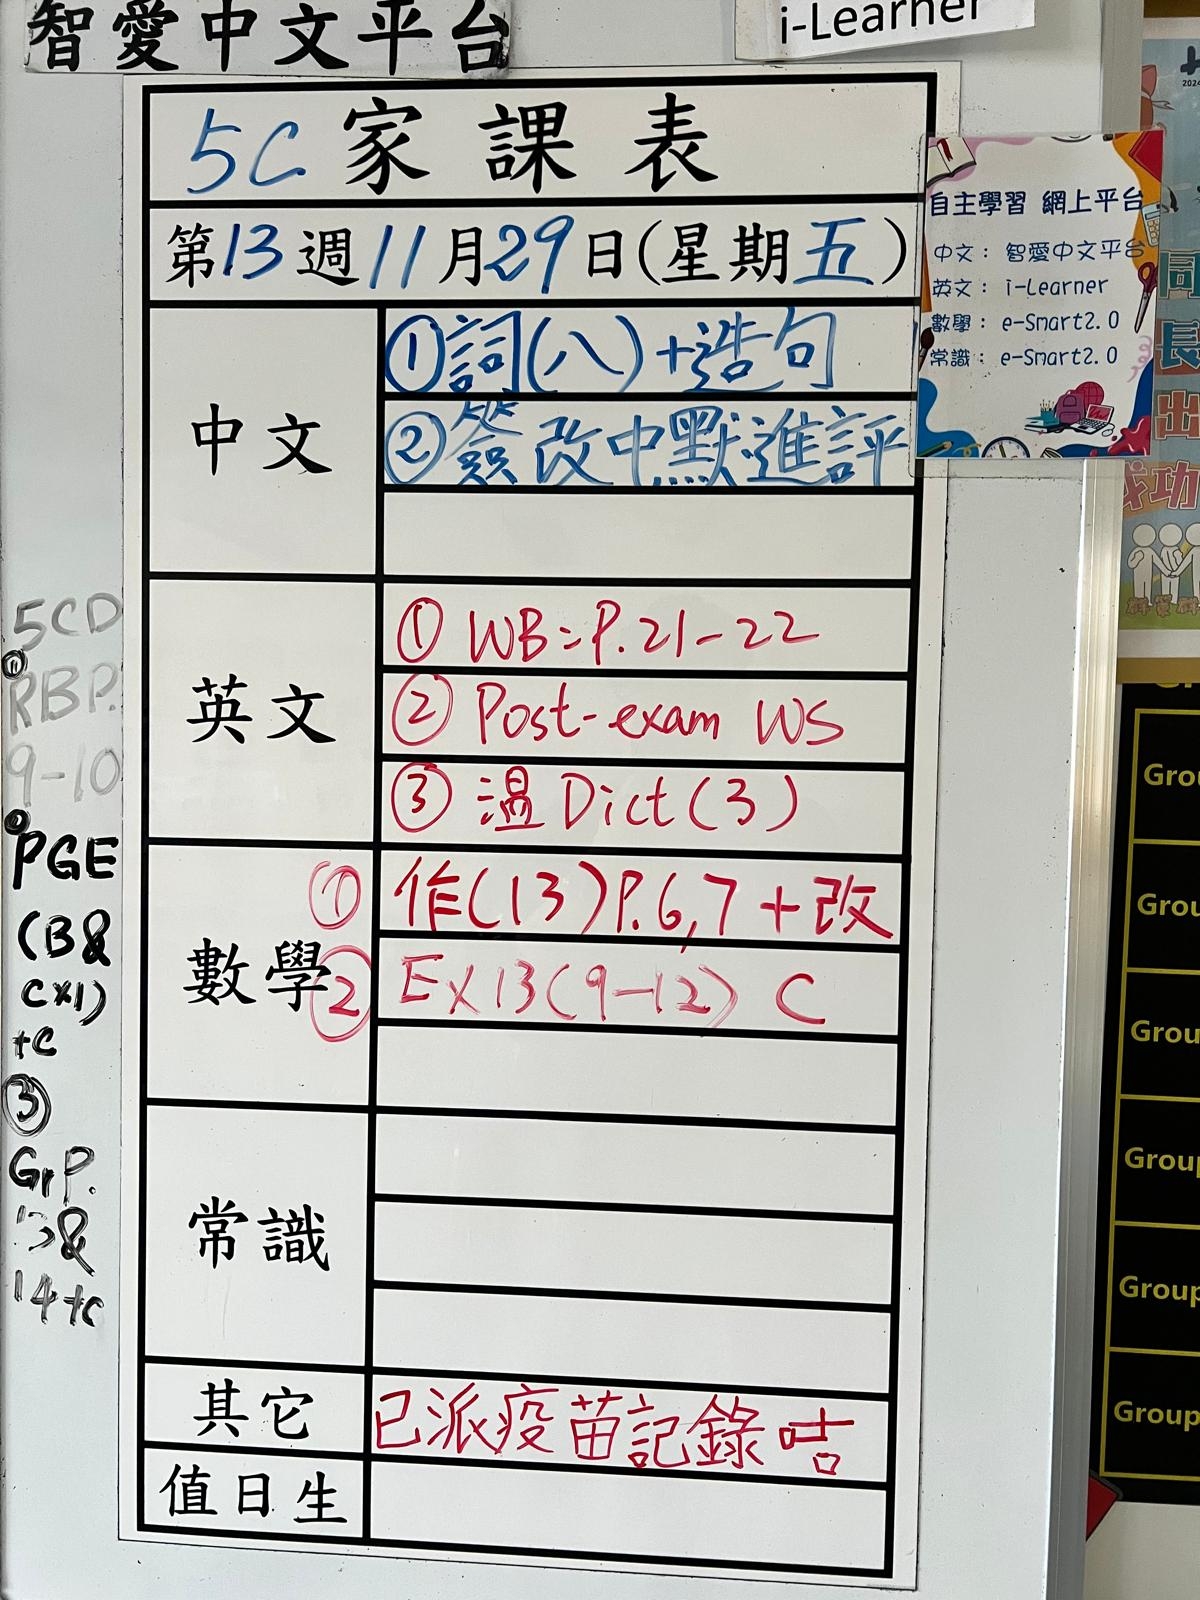 智愛中文平台
i-Learner
5C 家課表
第13週11月29日(星期五)
中文
①詞(八)+造句
②簽改中默進評
英文
① WB=P.21-22
② Post-exam WS
③ 溫Dict(3)
數學
① 作(13)P.6,7+改
② Ex13(9-12) C
常識
其它
已派疫苗記錄咭
值日生
5CD
RBP.
9-10
PGE
(B&
Cx1)
+C
③
GrP.
&
14+C
自主學習 網上平台
中文： 智愛中文平台
英文： i-Learner
數學： e-Smart2.0
常識： e-Smart2.0
2024
同
長
出
成功
Grou
Grou
Grou
Group
Group
Group